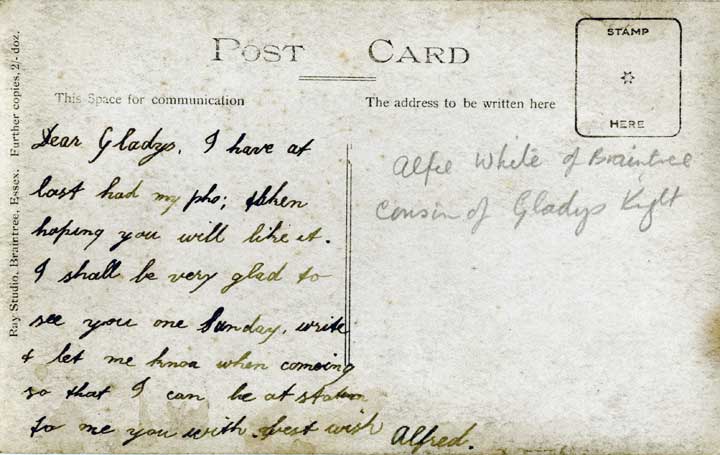 POST CARD
STAMP
HERE
This Space for communication
The address to be written here
Dear Gladys. I have at
last had my pho; taken
hoping you will like it.
I shall be very glad to
see you one Sunday, write
& let me knoa when comeing
so that I can be at station
to me you with best wish
Alfred.
Alfie White of Braintree
cousin of Gladys
Ray Studio, Braintree, Essex. Further copies, 2/- doz.